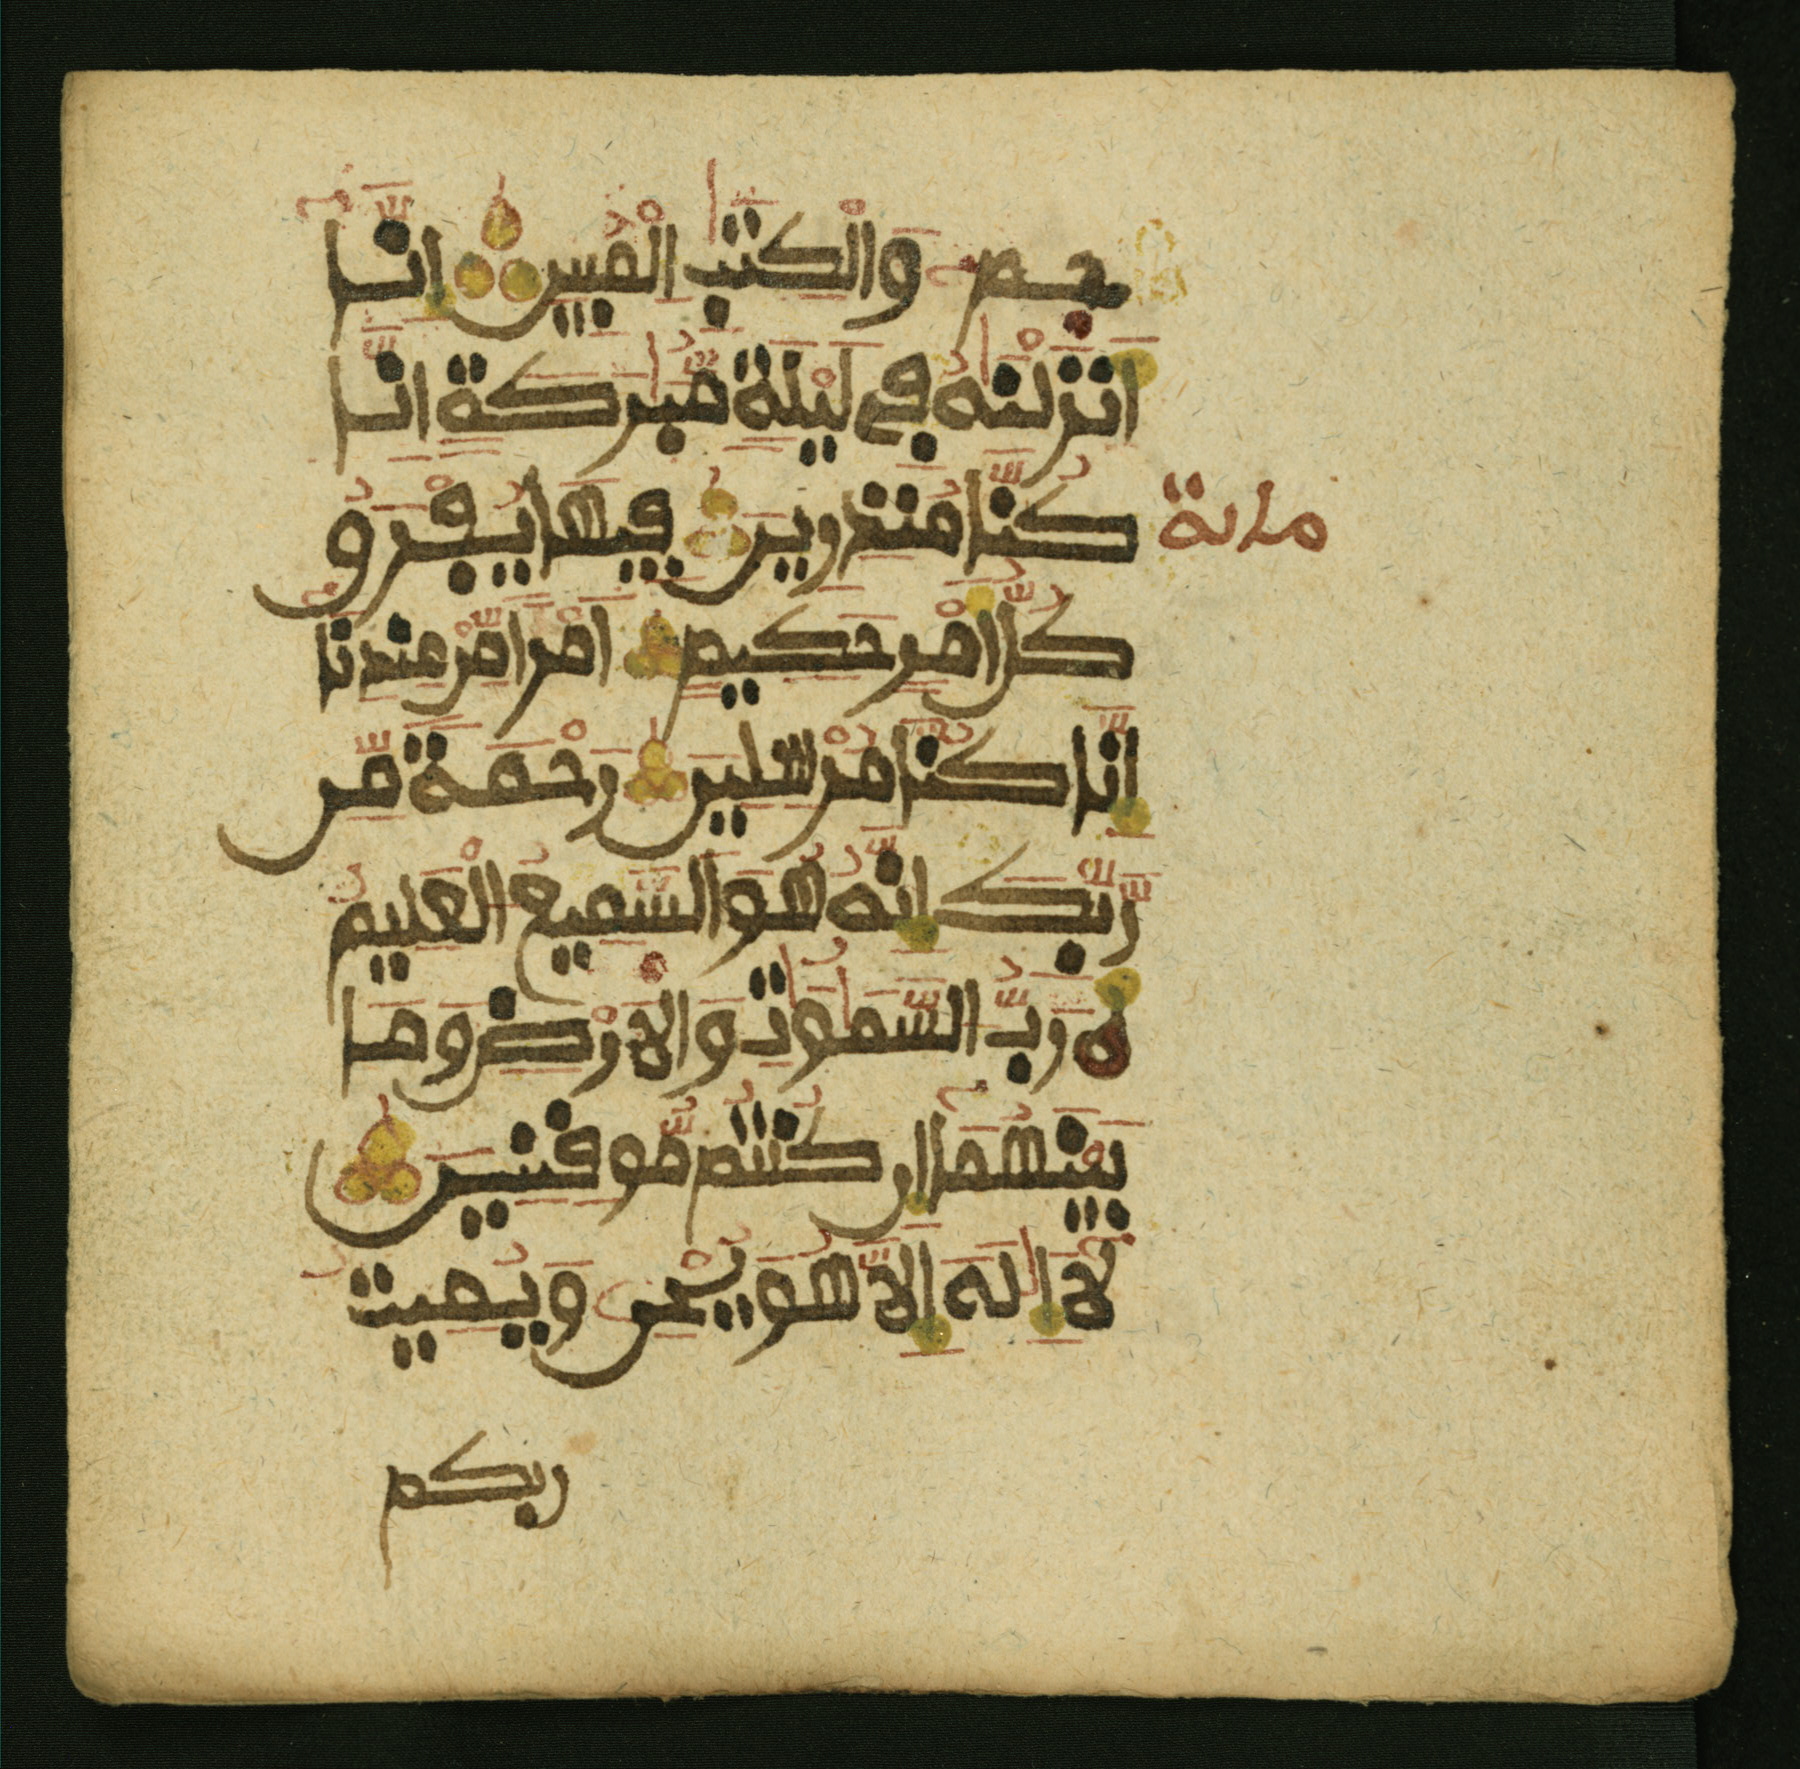 حم وَالْكِتٰبِ الْمُبِينِ اِنَّا
اَنزَلْنٰهُ فِي لَيْلَةٍ مُّبٰرَكَةٍ اِنَّا
كُنَّا مُنذِرِينَ فِيهَا يُفْرَقُ
مائة
كُلُّ اَمْرٍ حَكِيمٍ اَمْراً مِّنْ عِندِنَا
اِنَّا كُنَّا مُرْسِلِينَ رَحْمَةً مِّن
رَّبِّكَ اِنَّهُ هُوَ السَّمِيعُ الْعَلِيمُ
رَبُّ السَّمٰوٰتِ وَالاَرْضِ وَمَا
بَيْنَهُمَا اِن كُنتُم مُّوقِنِينَ
لَا اِلٰهَ اِلَّا هُوَ يُحْيِ وَيُمِيتُ
ربكم